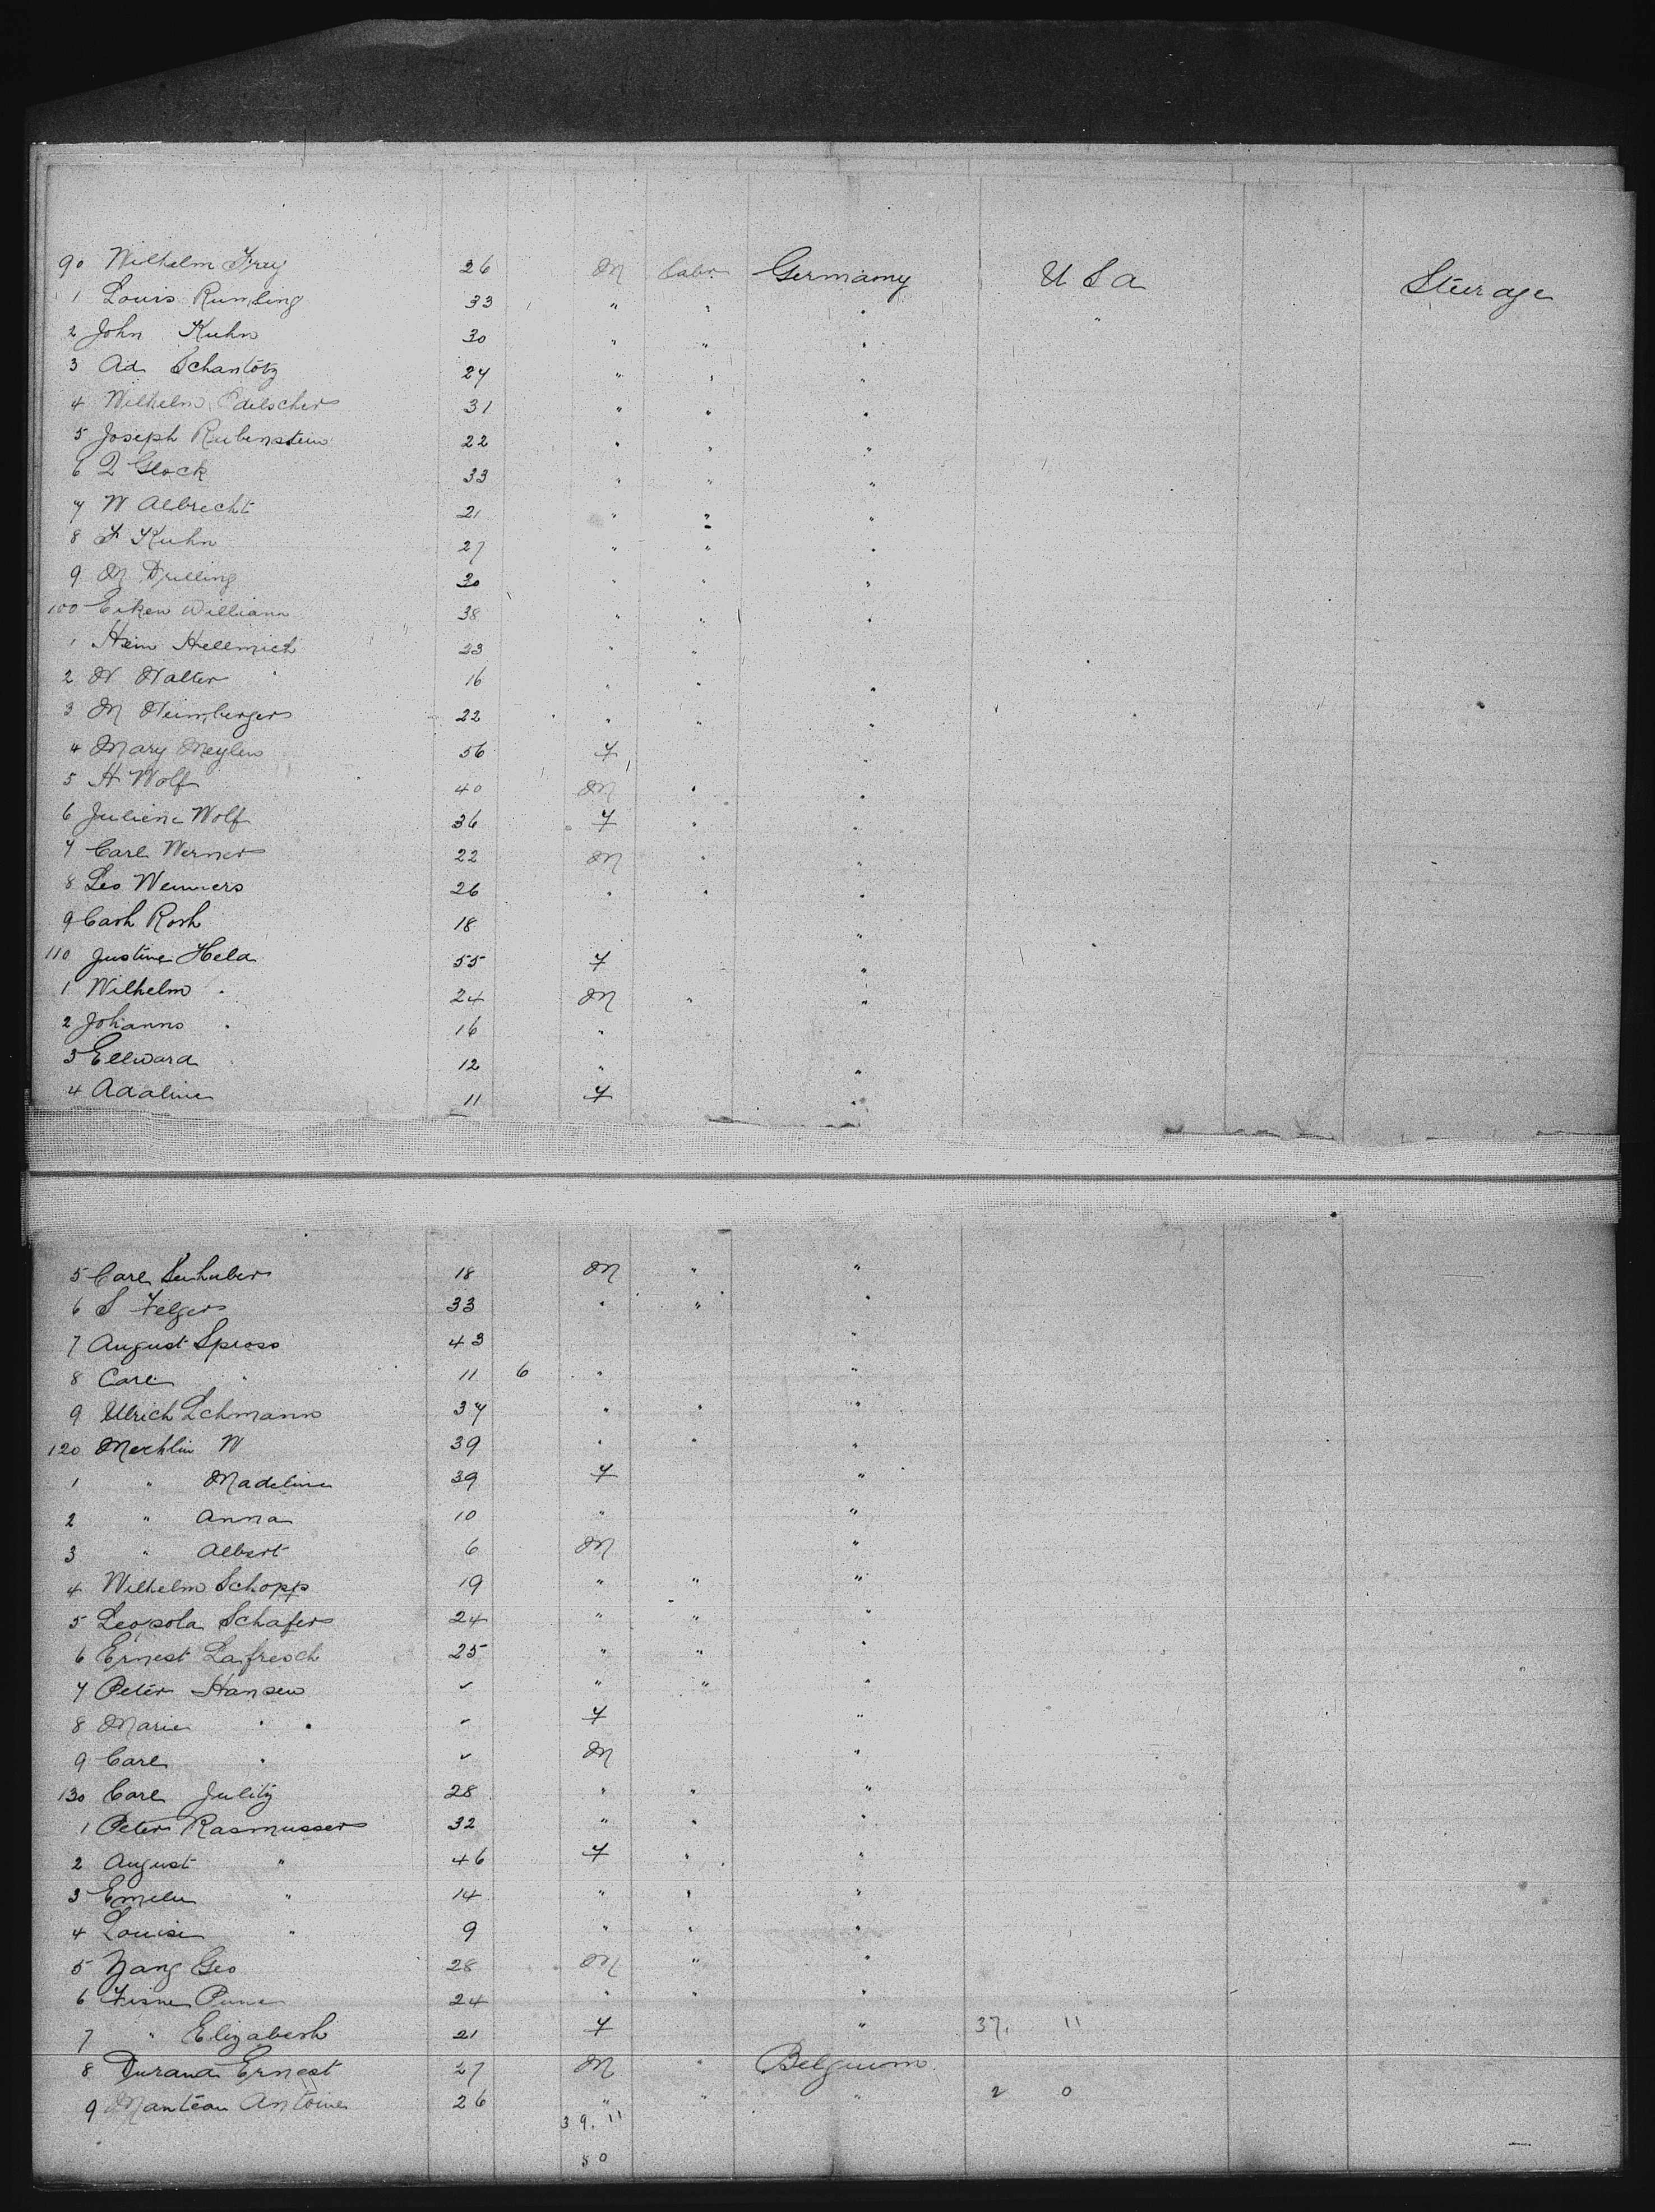 90 Wilhelm Fray 26 M Labr Germany U S A Steerage
1 Louis Rumling 33 " " " "
2 John Kuhn 30 " " "
3 Ad Schantötz 24 " " "
4 Wilhelm 31 " " "
5 Joseph Rubenstein 22 " " "
6 Q Glock 33 " " "
7 W Albrecht 21 " " "
8 F Kuhn 27 " " "
9 M Drilling 30 " " "
100 Eiken William 38 " " "
1 Hein Hellmich 23 " "
2 W Walter 16 " " "
3 M Weimberger 22 " " "
4 Mary Meylen 56 F
5 H Wolf 40 M " "
6 Juliene Wolf 36 F " "
7 Carl Werner 22 M " "
8 Leo Wenners 26 " " "
9 Cash Rosh 18 "
110 Justine Held 55 F "
1 Wilhelm " 24 M " "
2 Johanns " 16 "
3 Edward 12 " "
4 Adaline 11 F "
5 Carl Suhuber 18 M " "
6 S Felger 33 " " "
7 August Spross 43 "
8 Carl " 11 6 " "
9 Ulrich Lehmann 37 " " "
120 Mechlin W 39 " " "
1 " Madeline 39 F "
2 " Anna 10 " "
3 " Albert 6 M "
4 Wilhelm Schopp 19 " " "
5 Leopold Schafer 24 " " "
6 Ernest Laifresch 25 " " "
7 Peter Hansen ✓ " " "
8 Marie " ✓ F "
9 Carl " ✓ M "
130 Carl Julitz 28 " " "
1 Peter Rasmussen 32 " " "
2 August " 46 F " "
3 Emelie " 14 " " "
4 Louise " 9 " " "
5 Zang Geo 28 M " "
6 24 " " "
7 " Elizabesh 21 F " 37. 11
8 Durand Ernest 27 M " Belgium
9 Manteau Antoine 26 " " " 2 0
39. 11
50